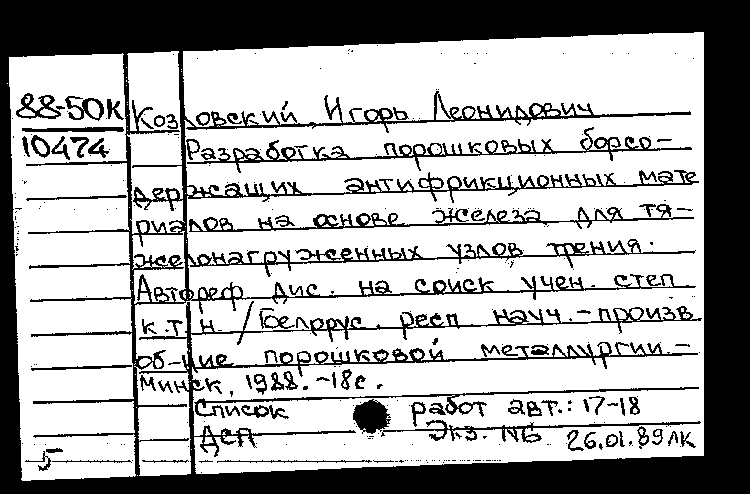 88-50К Козловский, Игорь Леонидович
10474 Разработка порошковых борсо-
держащих антифрикционных мате
риалов на основе железа для тя-
желонагруженных узлов трения.
Автореф дис. на соиск учен. степ
к.т.н. / Белорус. респ науч.-произв.
об-ние порошковой металлургии.-
Минск, 1988.-18с.
Список работ авт.: 17-18
ДСП Экз. №6 26.01.89 ЛК
5